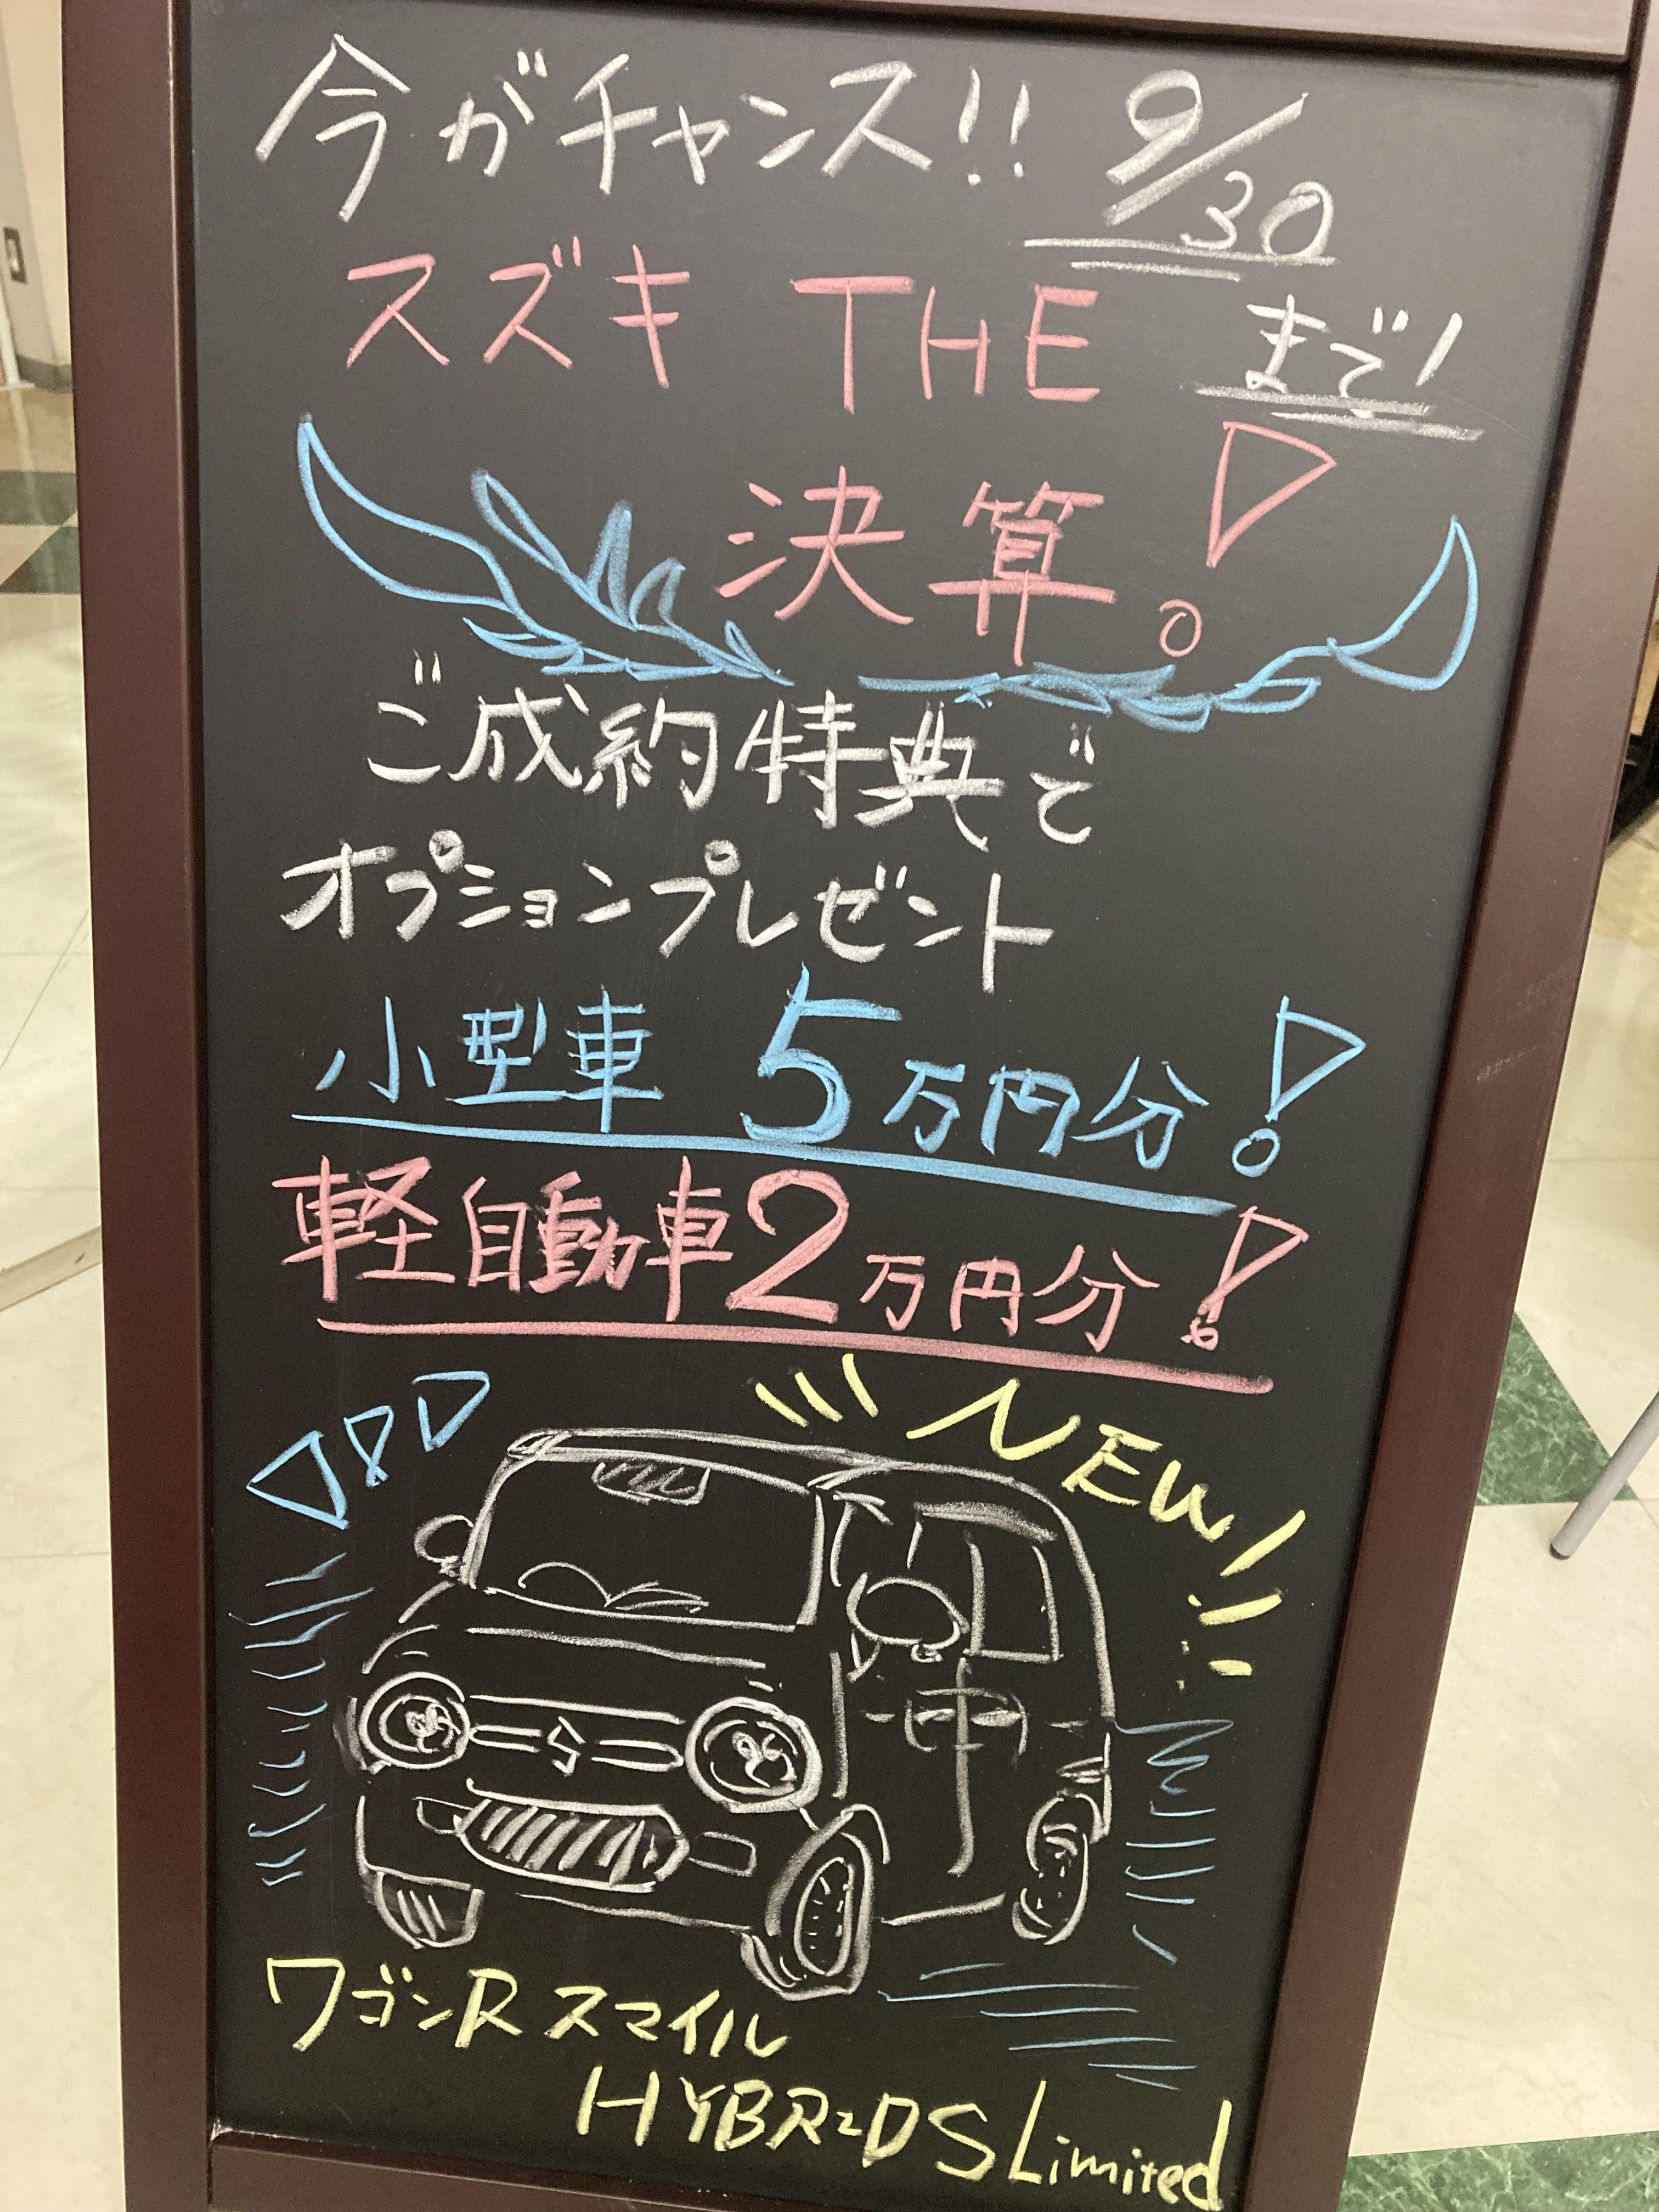 今がチャンス!! 9/30
まで!
スズキ THE
決算。!
ご成約特典で
オプションプレゼント
小型車 5万円分!
軽自動車2万円分!
NEW!
S
ワゴンRスマイル
HYBRID S Limited